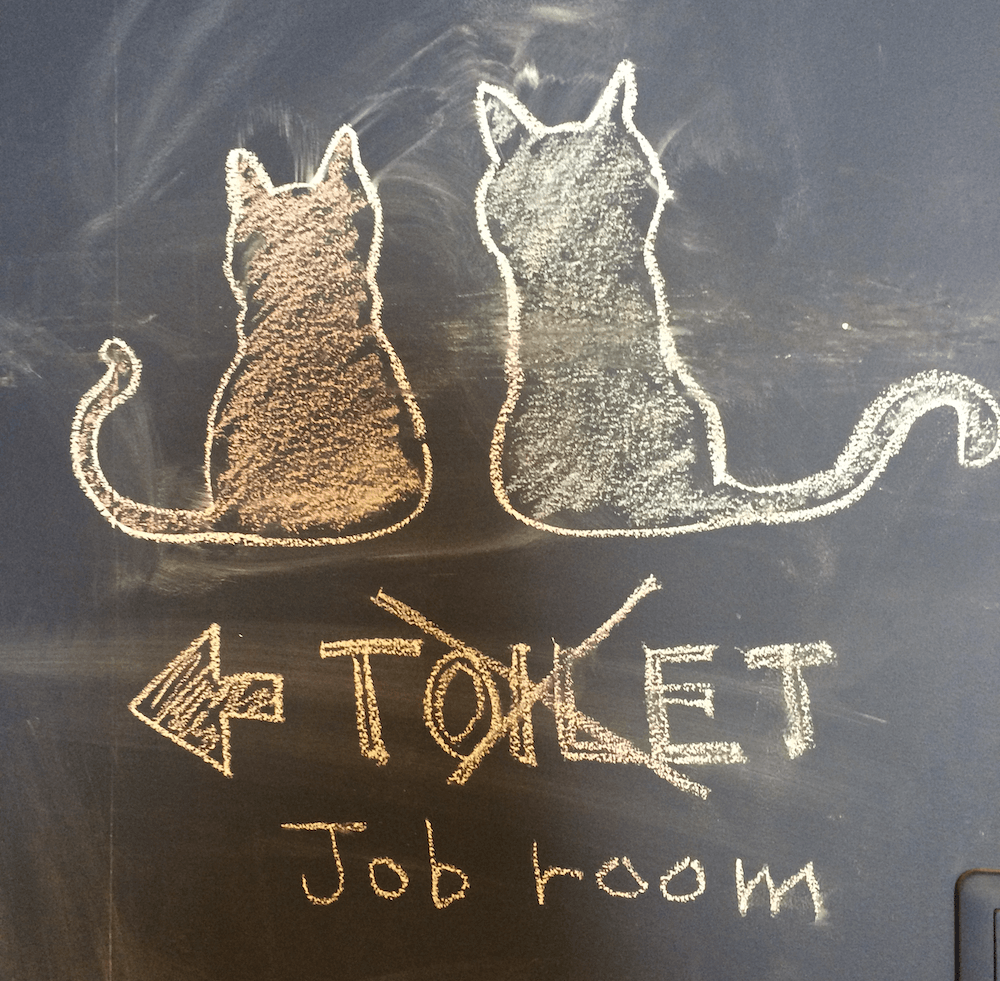 TOILET
Job room